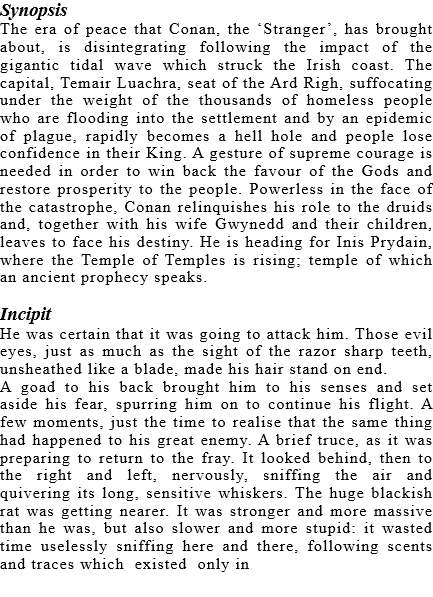 Synopsis
The era of peace that Conan, the ‘Stranger’, has brought
about, is disintegrating following the impact of the
gigantic tidal wave which struck the Irish coast. The
capital, Temair Luachra, seat of the Ard Righ, suffocating
under the weight of the thousands of homeless people
who are flooding into the settlement and by an epidemic
of plague, rapidly becomes a hell hole and people lose
confidence in their King. A gesture of supreme courage is
needed in order to win back the favour of the Gods and
restore prosperity to the people. Powerless in the face of
the catastrophe, Conan relinquishes his role to the druids
and, together with his wife Gwynedd and their children,
leaves to face his destiny. He is heading for Inis Prydain,
where the Temple of Temples is rising; temple of which
an ancient prophecy speaks.
Incipit
He was certain that it was going to attack him. Those evil
eyes, just as much as the sight of the razor sharp teeth,
unsheathed like a blade, made his hair stand on end.
A goad to his back brought him to his senses and set
aside his fear, spurring him on to continue his flight. A
few moments, just the time to realise that the same thing
had happened to his great enemy. A brief truce, as it was
preparing to return to the fray. It looked behind, then to
the right and left, nervously, sniffing the air and
quivering its long, sensitive whiskers. The huge blackish
rat was getting nearer. It was stronger and more massive
than he was, but also slower and more stupid: it wasted
time uselessly sniffing here and there, following scents
and traces which existed only in